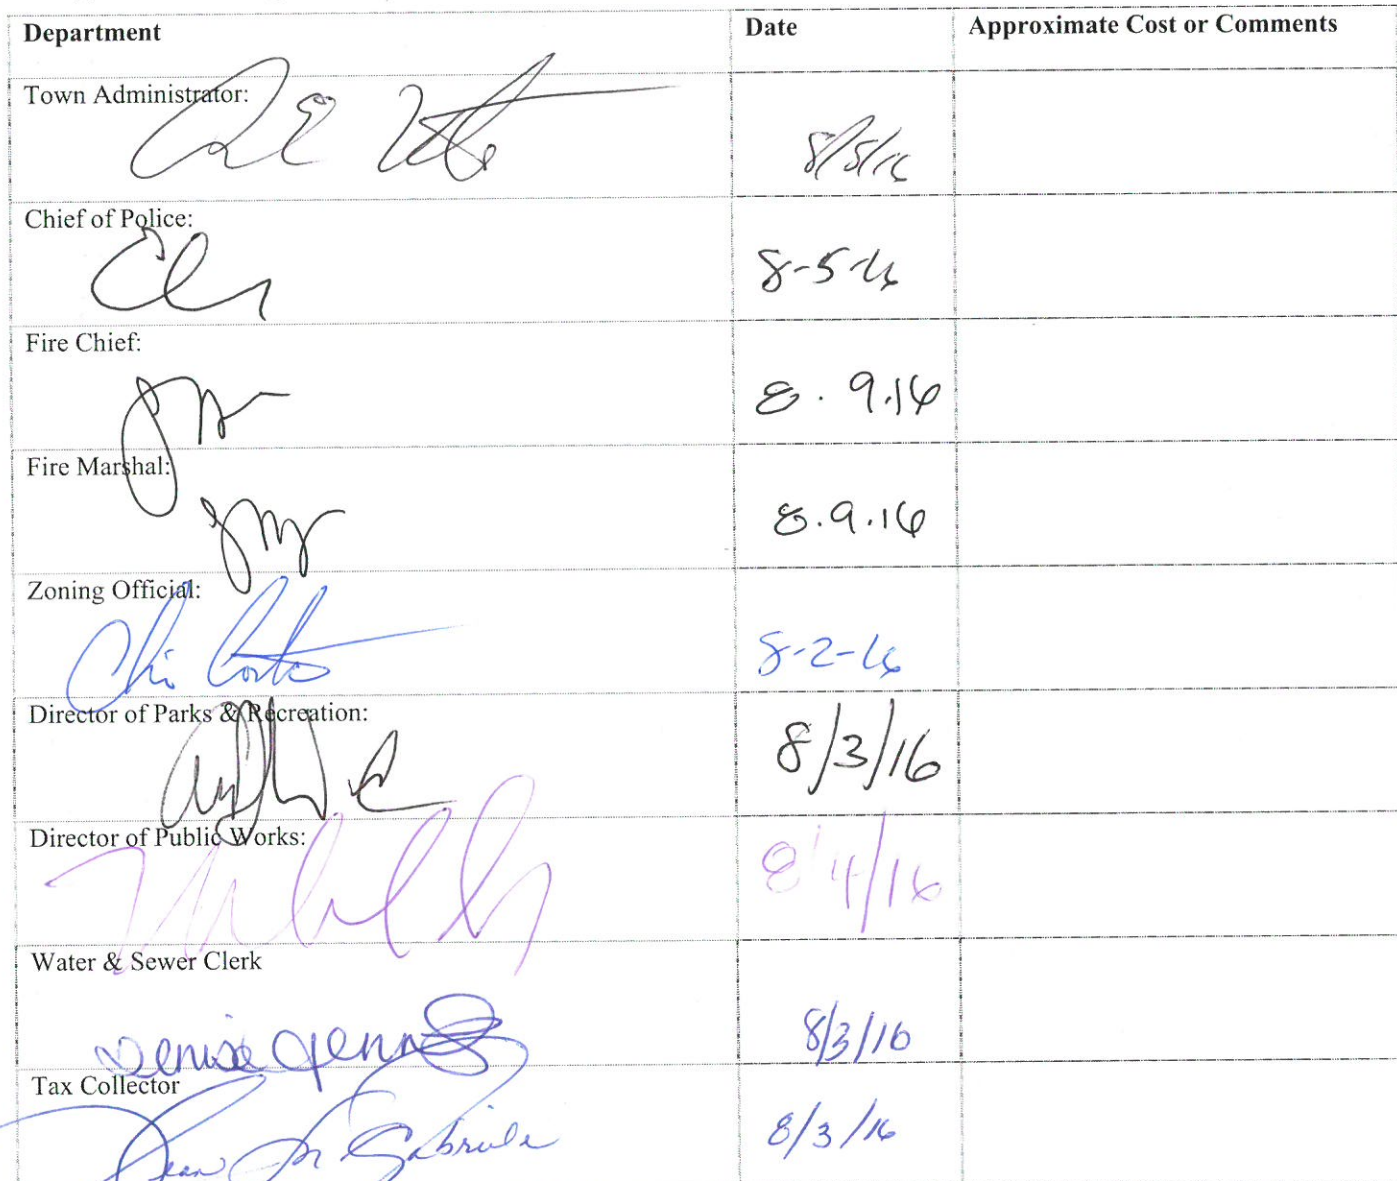 Department Date Approximate Cost or Comments
Town Administrator:
8/5/16
Chief of Police:
8-5-16
Fire Chief:
8. 9.16
Fire Marshal:
8.9.16
Zoning Official:
8-2-16
Director of Parks & Recreation:
8/3/16
Director of Public Works:
8/4/16
Water & Sewer Clerk
Denise 8/3/16
Tax Collector
8/3/16